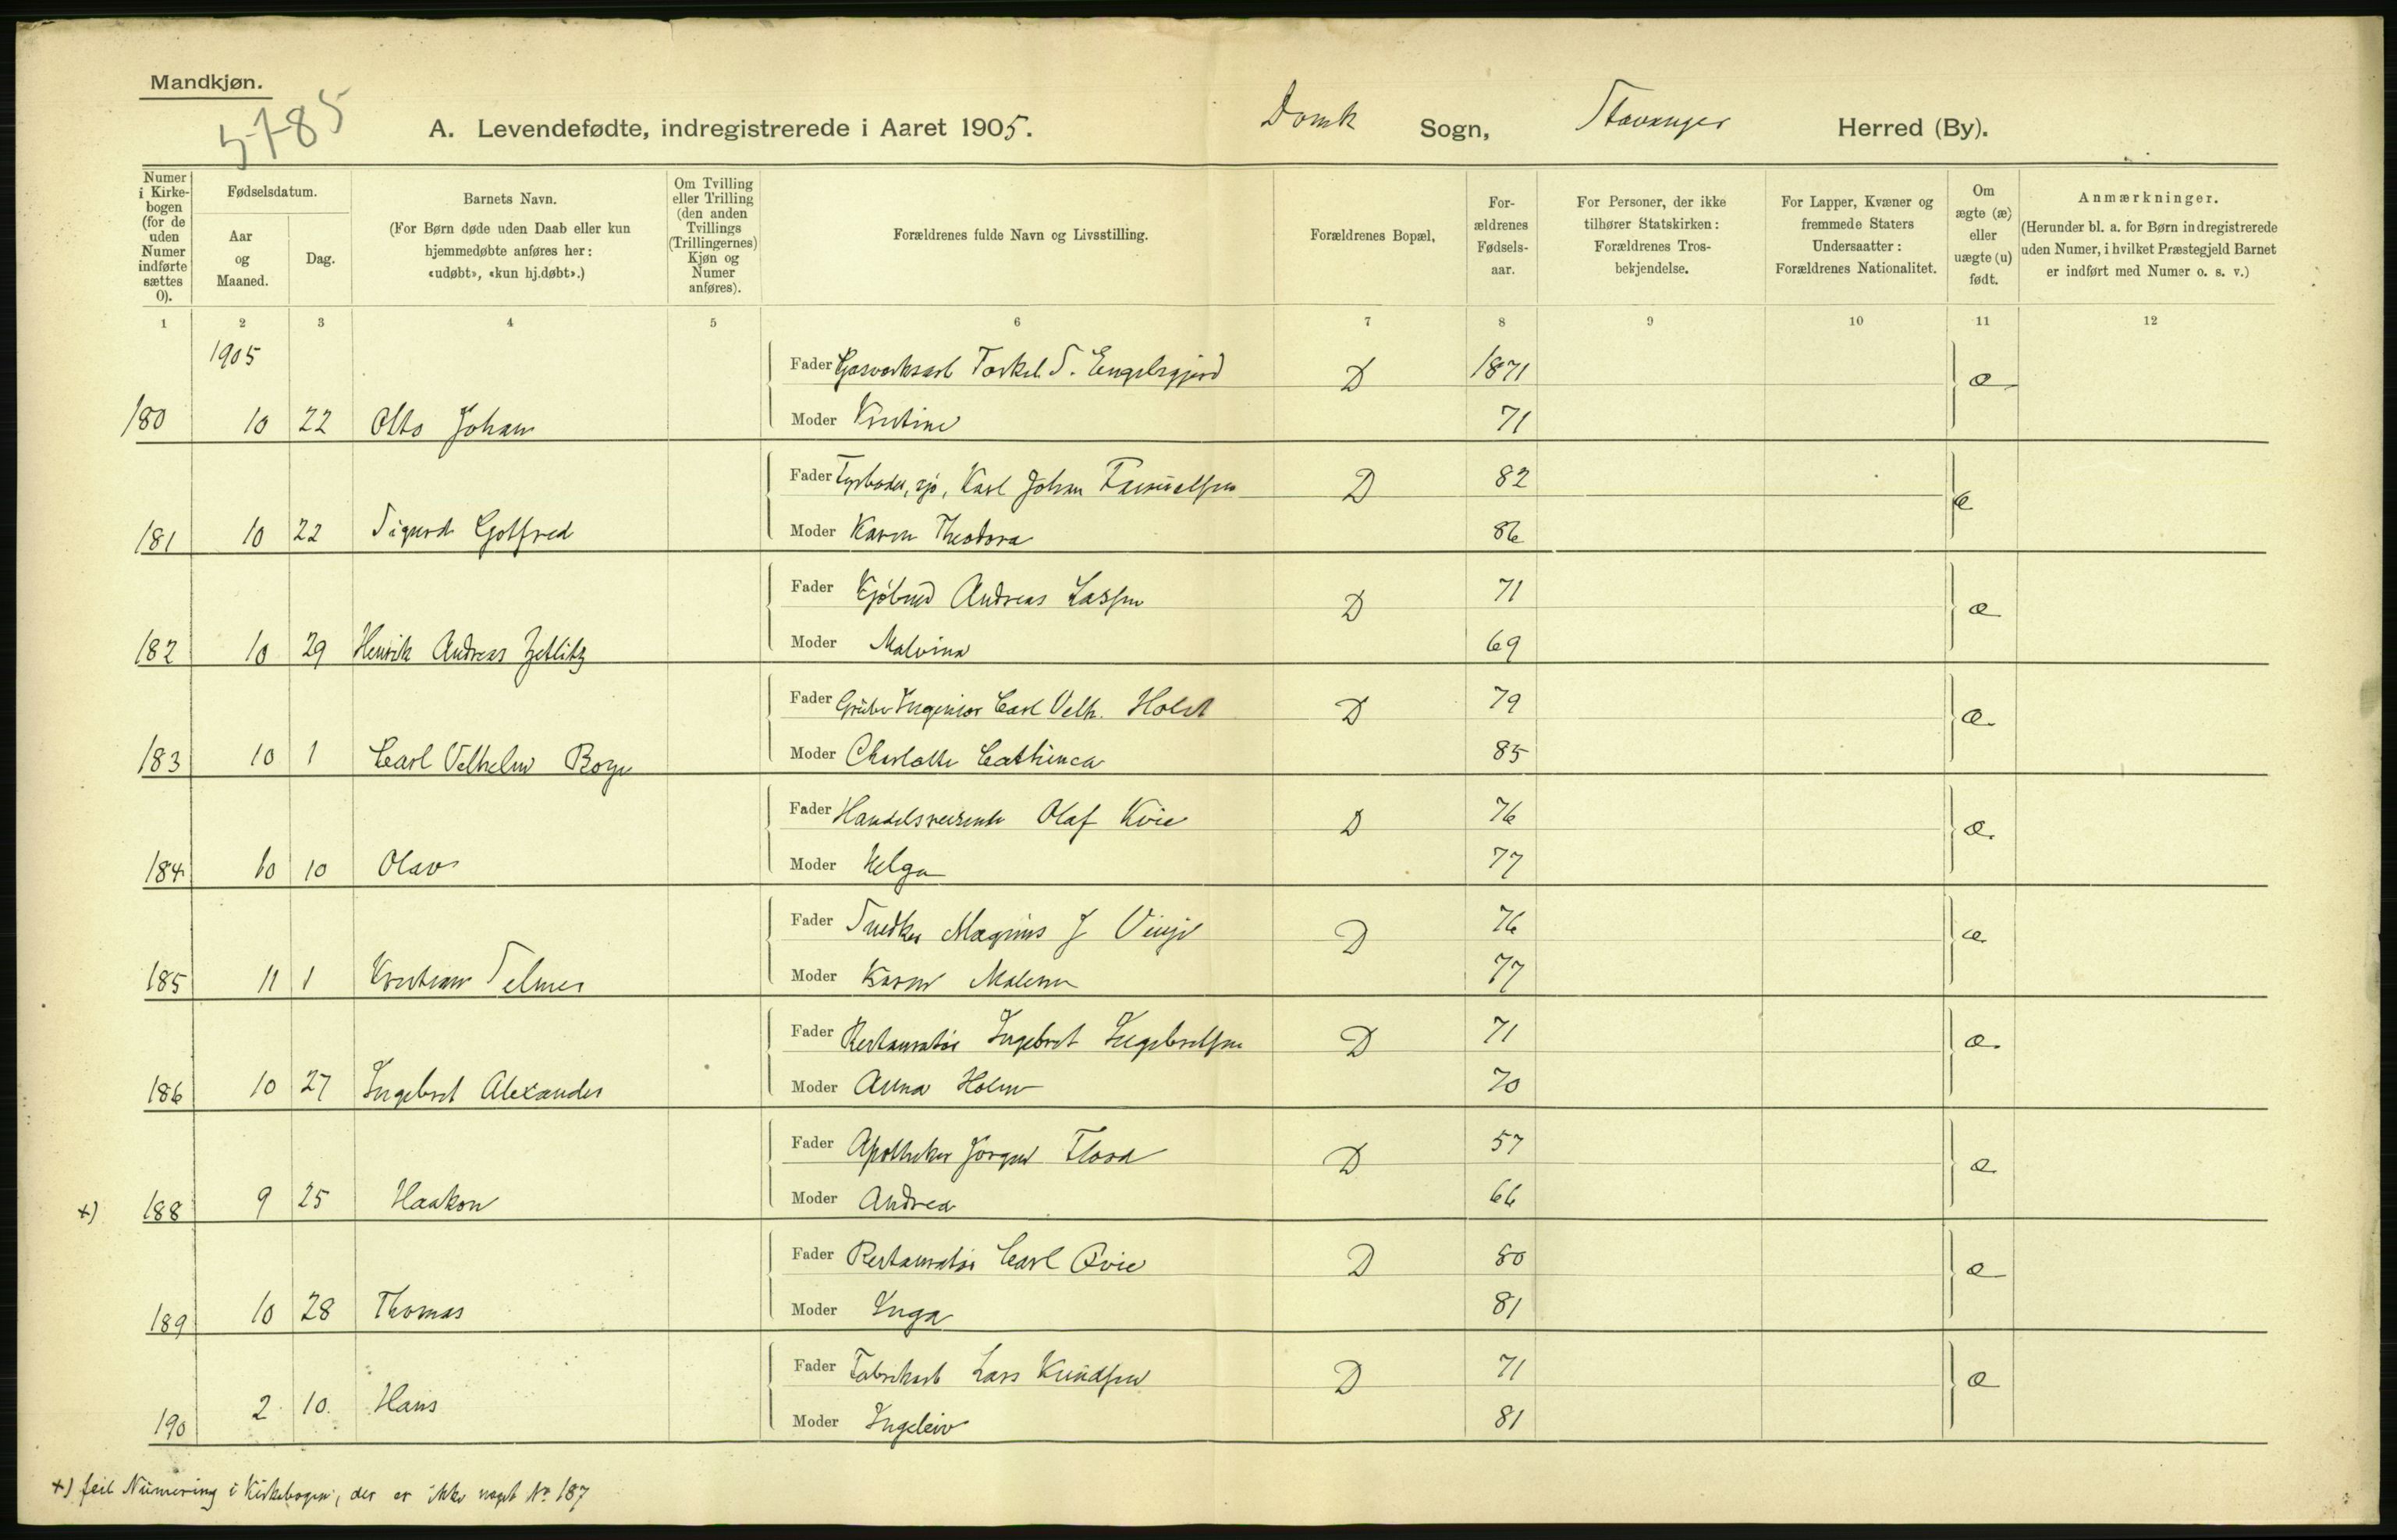 Mandkjøn.
5785
A. Levendefødte, indregistrerede i Aaret 1905. Domk Sogn, Stavanger Herred (By).
Numer i Kirke-bogen (for de uden Numer indførte sættes 0).
Fødselsdatum.
Aar og Maaned.
Dag.
Barnets Navn.
(For Børn døde uden Daab eller kun hjemmedøbte anføres her: «udøbt», «kun hj.døbt».)
Om Tvilling eller Trilling (den anden Tvillings (Trillingernes) Kjøn og Numer anføres).
Forældrenes fulde Navn og Livsstilling.
Forældrenes Bopæl,
For-ældrenes Fødsels-aar.
For Personer, der ikke tilhører Statskirken: Forældrenes Tros-bekjendelse.
For Lapper, Kvæner og fremmede Staters Undersaatter: Forældrenes Nationalitet.
Om ægte (æ) eller uægte (u) født.
Anmærkninger.
(Herunder bl. a. for Børn indregistrerede uden Numer, i hvilket Præstegjeld Barnet er indført med Numer o. s. v.)
1 2 3 4 5 6 7 8 9 10 11 12
1905
Fader Gasverksarb Torkel S. Engelsgjerd D 1871 æ
180 10 22 Otto Johan Moder Kristine 71
Fader Fyrbøder, sjø, Karl Johan D 82 æ
181 10 22 Sigurd Gotfred Moder Karen Theodora 86
Fader Kjøbmd Andreas Lassen D 71 æ
182 10 29 Henrik Andreas Zetlitz Moder Malvina 69
Fader Grube Ingeniør Carl Velh. Holst D 79 æ
183 10 1 Carl Velhelm Borge Moder Charlotte Cathinca 85
Fader Handelsreisende Olaf Kvie D 76 æ
184 10 10 Olav Moder Helga 77
Fader Snedker Magnus J Vinje D 76 æ
185 11 1 Kristian Selmer Moder Karen Malene 77
Fader Restauratør Ingebret Ingebretsen D 71 æ
186 10 27 Ingebret Alexander Moder Anna Holm 70
Fader Apotheker Jørgen Flood D 57 æ
+) 188 9 25 Haakon Moder Andrea 66
Fader Restauratør Carl Qvie D 80 æ
189 10 28 Thomas Moder Inga 81
Fader Fabrikarb Lars Knudsen D 71 æ
190 2 10. Hans Moder Ingeleiv 81
+) feil Numering i Kirkebogen, der er ikke noget No 187